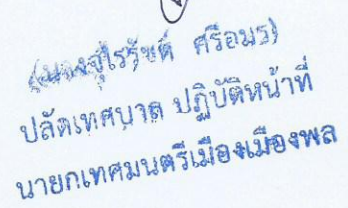 (นางจุไรรัชต์ ศรีอมร)
ปลัดเทศบาล ปฏิบัติหน้าที่
นายกเทศมนตรีเมืองเมืองพล